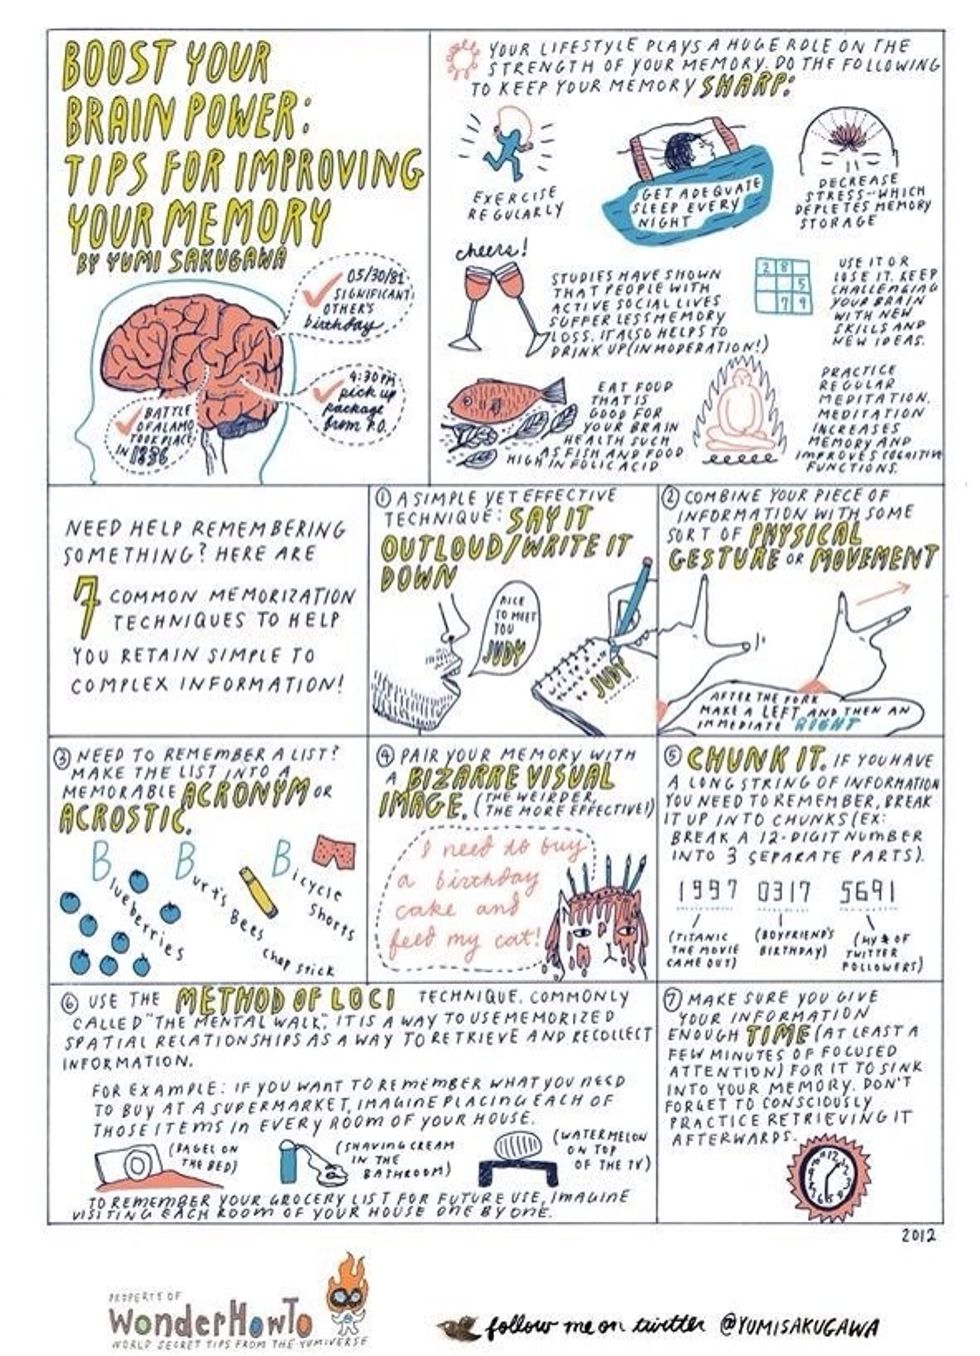 BOOST YOUR
BRAIN POWER:
TIPS FOR IMPROVING
YOUR MEMORY
BY YUMI SAKUGAWA
05/30/81
SIGNIFICANT
OTHER'S
birthday
4:30PM
pick up
package
from P.O.
BATTLE
OF ALAMO
TOOK PLACE
IN 1836
YOUR LIFESTYLE PLAYS A HUGE ROLE ON THE
STRENGTH OF YOUR MEMORY. DO THE FOLLOWING
TO KEEP YOUR MEMORY SHARP:
EXERCISE
REGULARLY
GET ADEQUATE
SLEEP EVERY
NIGHT
DECREASE
STRESS--WHICH
DEPLETES MEMORY
STORAGE
cheers!
STUDIES HAVE SHOWN
THAT PEOPLE WITH
ACTIVE SOCIAL LIVES
SUFFER LESS MEMORY
LOSS. IT ALSO HELPS TO
DRINK UP (IN MODERATION!)
2 8
5
7 9
USE IT OR
LOSE IT. KEEP
CHALLENGING
YOUR BRAIN
WITH NEW
SKILLS AND
NEW IDEAS.
EAT FOOD
THAT IS
GOOD FOR
YOUR BRAIN
HEALTH SUCH
AS FISH AND FOOD
HIGH IN FOLIC ACID
PRACTICE
REGULAR
MEDITATION.
MEDITATION
INCREASES
MEMORY AND
IMPROVES COGNITIVE
FUNCTIONS.
NEED HELP REMEMBERING
SOMETHING? HERE ARE
7 COMMON MEMORIZATION
TECHNIQUES TO HELP
YOU RETAIN SIMPLE TO
COMPLEX INFORMATION!
① A SIMPLE YET EFFECTIVE
TECHNIQUE: SAY IT
OUTLOUD/WRITE IT
DOWN
NICE
TO MEET
YOU
JUDY
JUDY
② COMBINE YOUR PIECE OF
INFORMATION WITH SOME
SORT OF PHYSICAL
GESTURE OR MOVEMENT
AFTER THE FORK
MAKE A LEFT AND THEN AN
IMMEDIATE RIGHT
③ NEED TO REMEMBER A LIST?
MAKE THE LIST INTO A
MEMORABLE ACRONYM OR
ACROSTIC.
Blueberries
Burt's Bees
chap stick
Bicycle
Shorts
④ PAIR YOUR MEMORY WITH
A BIZARRE VISUAL
IMAGE. (THE WEIRDER,
THE MORE EFFECTIVE!)
I need to buy
a birthday
cake and
feed my cat!
⑤ CHUNK IT. IF YOU HAVE
A LONG STRING OF INFORMATION
YOU NEED TO REMEMBER, BREAK
IT UP INTO CHUNKS (EX:
BREAK A 12-DIGIT NUMBER
INTO 3 SEPARATE PARTS).
1997 0317 5691
(TITANIC
THE MOVIE
CAME OUT)
(BOYFRIEND'S
BIRTHDAY)
(MY # OF
TWITTER
FOLLOWERS)
⑥ USE THE METHOD OF LOCI TECHNIQUE. COMMONLY
CALLED "THE MENTAL WALK", IT IS A WAY TO USE MEMORIZED
SPATIAL RELATIONSHIPS AS A WAY TO RETRIEVE AND RECOLLECT
INFORMATION.
FOR EXAMPLE: IF YOU WANT TO REMEMBER WHAT YOU NEED
TO BUY AT A SUPERMARKET, IMAGINE PLACING EACH OF
THOSE ITEMS IN EVERY ROOM OF YOUR HOUSE.
(BAGEL ON
THE BED)
(SHAVING CREAM
IN THE
BATHROOM)
(WATERMELON
ON TOP
OF THE TV)
TO REMEMBER YOUR GROCERY LIST FOR FUTURE USE, IMAGINE
VISITING EACH ROOM OF YOUR HOUSE ONE BY ONE.
⑦ MAKE SURE YOU GIVE
YOUR INFORMATION
ENOUGH TIME (AT LEAST A
FEW MINUTES OF FOCUSED
ATTENTION) FOR IT TO SINK
INTO YOUR MEMORY. DON'T
FORGET TO CONSCIOUSLY
PRACTICE RETRIEVING IT
AFTERWARDS.
2012
PROPERTY OF
WonderHowTo
WORLD SECRET TIPS FROM THE YUMIVERSE
follow me on twitter @YUMISAKUGAWA